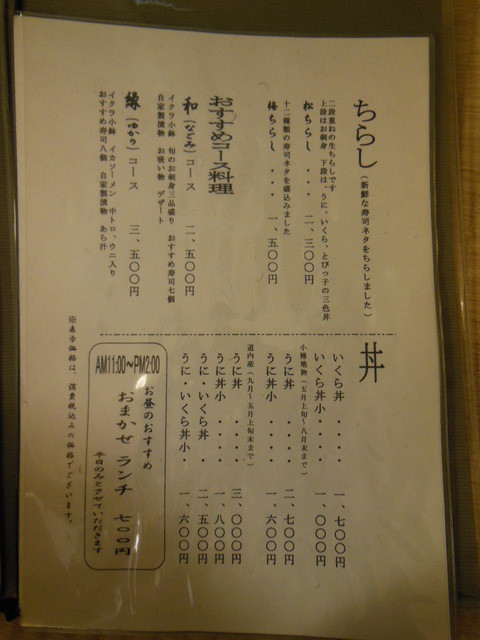 ちらし（新鮮な寿司ネタをちらしました）
二段重ねの生ちらしです
上段はお刺身 下段は、うに、いくら、とびっ子の三色丼
松ちらし・・・二、三〇〇円
十二種類の寿司ネタを盛込みました
梅ちらし・・・一、五〇〇円
おすすめコース料理
和（なごみ）コース 二、五〇〇円
イクラ小鉢 旬のお刺身三品盛り おすすめ寿司七個
自家製漬物 お吸い物 デザート
縁（ゆかり）コース 三、五〇〇円
イクラ小鉢 イカソーメン 中トロ、ウニ入り
おすすめ寿司八個 自家製漬物 あら汁
丼
いくら丼・・・・一、七〇〇円
いくら丼小・・・・一、〇〇〇円
小樽地物（五月上旬〜八月末まで）
うに丼・・・・二、七〇〇円
うに丼小・・・・一、六〇〇円
道内産（九月〜五月上旬末まで）
うに丼・・・・三、〇〇〇円
うに丼小・・・・一、八〇〇円
うに・いくら丼・・二、五〇〇円
うに・いくら丼小・一、六〇〇円
AM11:00〜PM2:00
お昼のおすすめ
おまかせ ランチ 七〇〇円
平日のみとさせていただきます
※表示価格は、消費税込みの価格でございます。